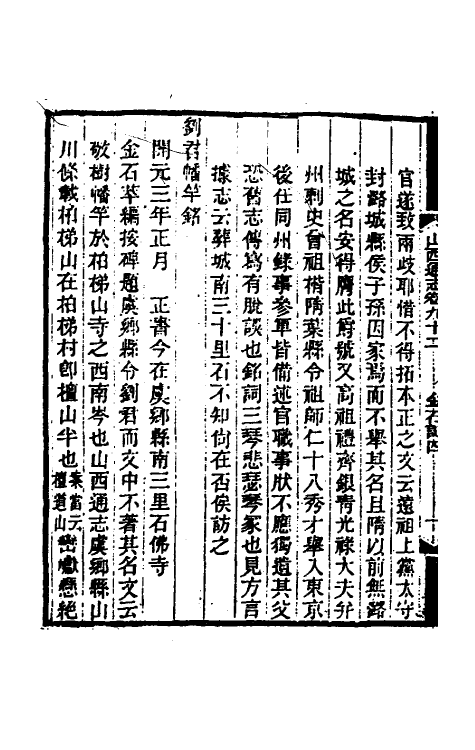 山西通志卷九十二 金石記四
官遂致兩歧耶惜不得拓本正之文云遠祖上黨太守
封潞城縣侯子孫因家焉而不舉其名且隋以前無潞
城之名安得膺此爵號又高祖禮齊銀青光祿大夫弁
州刺史曾祖楷隋葉縣令祖師仁十八秀才舉入東京
後仕同州錄事參軍皆備述官職事狀不應獨遺其父
恐舊志傳寫有脫誤也銘詞三琴悲瑟琴冢也見方言
據志云葬城南三十里石不知尚在否俟訪之
劉君幡竿銘
開元三年正月 正書今在虞鄉縣南三里石佛寺
金石萃編按碑題虞鄉縣令劉君而文中不著其名文云
敬樹幡竿於柏梯山寺之西南岑也山西通志虞鄉縣山
川條載柏梯山在柏梯村卽檀山半也案當云檀道山巒巘懸絶